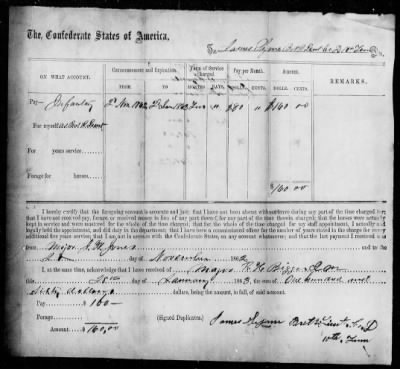 The Confederate States of America,
To James
ON WHAT ACCOUNT.
Commencement and Expiration.
Term of Service Charged.
Pay per Month.
Amount.
REMARKS.
FROM
TO
MONTHS.
DAYS.
DOLLS.
CENTS.
DOLLS.
CENTS.
Pay— Infantry 2d Nov 1862 2d Jan 1863 Two " $80 " $160 00
For myself
For years service
Forage for horses
$160 00
I hereby certify that the foregoing account is accurate and just; that I have not been absent without leave during any part of the time charged for;
that I have not received pay, forage or received money in lieu of any part thereof, for any part of the time therein charged; that the horses were actually
kept in service and were mustered for the whole of the time charged; that for the whole of the time charged for my staff appointment, I actually and
legally held the appointment, and did duty in the department; that I have been a commissioned officer for the number of years stated in the charge for every
additional five years' service; that I am not in arrears with the Confederate States, on any account whatsoever; and that the last payment I received is
from Major Jones and to the
day of November 1862
I, at the same time, acknowledge that I have received of Major
this day of January 1863, of One hundred and
Sixty dollars, being the amount, in full, of said account.
Pay $ 160—
Forage
Amount $160,00
(Signed Duplicates.)
James
10th Tenn